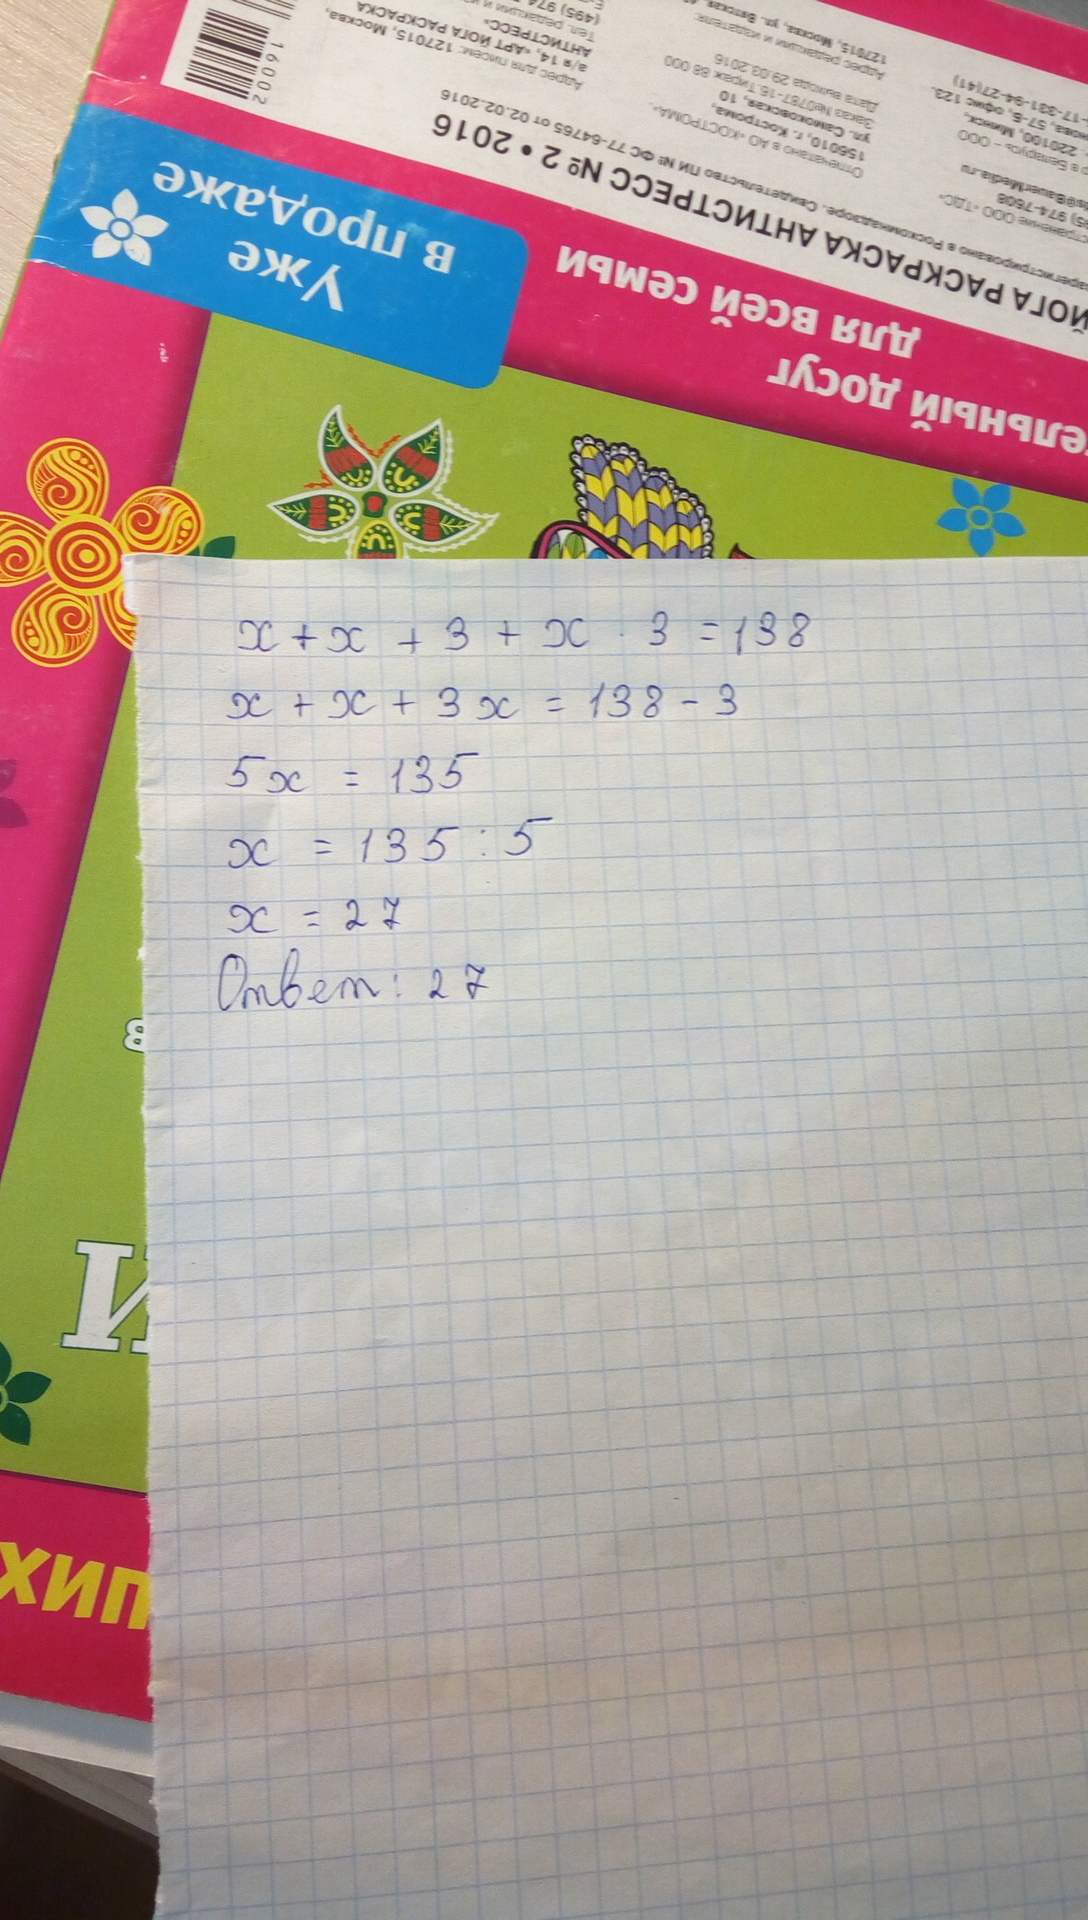 x + x + 3 + x · 3 = 138
x + x + 3x = 138 - 3
5x = 135
x = 135 : 5
x = 27
Ответ: 27
ельный досуг
для всей семьи
Уже
в продаже
ЙОГА РАСКРАСКА АНТИСТРЕСС № 2 • 2016
Свидетельство ПИ № ФС 77-64765 от 02.02.2016
Отпечатано в АО «КОСТРОМА»,
156010, г. Кострома,
ул. Самоковская, 10
Заказ №0787-16. Тираж 88 000
Дата выхода 29.03.2016
Адрес редакции и издателя:
127015, Москва, ул. Вятская
Адрес для писем: 127015, Москва,
а/я 14, «АРТ ЙОГА РАСКРАСКА
АНТИСТРЕСС»
Тел. редакции и
(495) 974
16002
220100, Минск,
57-5, офис 123.
-17-331-94-27(41)
в Беларусь - ООО
@BauerMedia.ru
5) 974-7608
ООО «ТДС»
в
И
ХИП